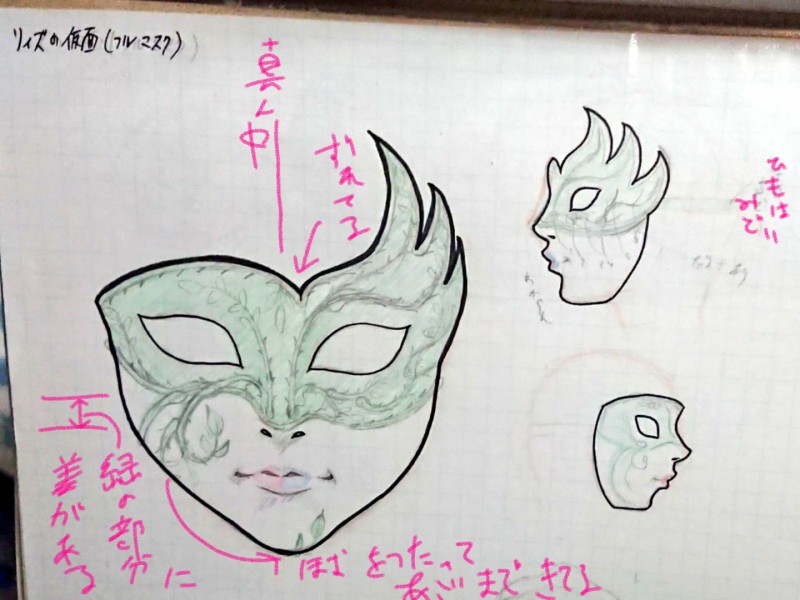 リィズの仮面(フルマスク)
真ん中
ずれてる
ひもはい
緑の部分に
差がある
ほほをつたって
あごまできてる